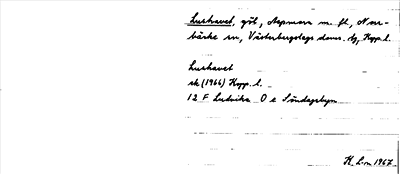 Lushavet, göl, Aspmora m. fl., Norr-
bärke sn, Västerbergslags doms. tg, Kopp. l.
Lushavet
sk (1966) Kopp. l.
12 F Ludvika O e Söndagsbyn
K. L-m 1967